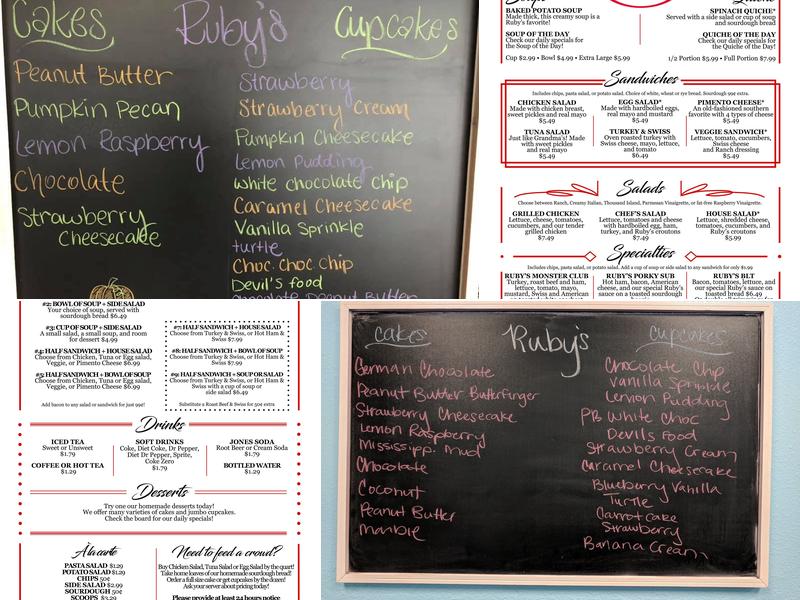 Cakes Ruby's Cupcakes
Peanut Butter
Pumpkin Pecan
Lemon Raspberry
Chocolate
Strawberry
Cheesecake
Strawberry
Strawberry Cream
Pumpkin Cheesecake
Lemon Pudding
White chocolate chip
Caramel Cheesecake
Vanilla Sprinkle
turtle
Choc. Choc Chip
Devil's food
chocolate Peanut Butter
Soup
BAKED POTATO SOUP
Made thick, this creamy soup is a
Ruby's favorite!
SOUP OF THE DAY
Check our daily specials for
the Soup of the Day!
Cup $2.99 • Bowl $4.99 • Extra Large $5.99
Quiche
SPINACH QUICHE*
Served with a side salad or cup of soup
and sourdough bread
QUICHE OF THE DAY
Check our daily specials for
the Quiche of the Day!
1/2 Portion $5.99 • Full Portion $7.99
Sandwiches
Includes chips, pasta salad, or potato salad. Choice of white, wheat or rye bread. Sourdough 99¢ extra.
CHICKEN SALAD
Made with chicken breast,
sweet pickles and real mayo
$5.49
EGG SALAD*
Made with hardboiled eggs,
real mayo and mustard
$5.49
PIMENTO CHEESE*
An old-fashioned southern
favorite with 4 types of cheese
$5.49
TUNA SALAD
Just like Grandma's! Made
with sweet pickles
and real mayo
$5.49
TURKEY & SWISS
Oven roasted turkey with
Swiss cheese, mayo, lettuce,
and tomato
$6.49
VEGGIE SANDWICH*
Lettuce, tomato, cucumbers,
Swiss cheese
and Ranch dressing
$5.49
Salads
Choose between Ranch, Creamy Italian, Thousand Island, Parmesan Vinaigrette, or fat-free Raspberry Vinaigrette.
GRILLED CHICKEN
Lettuce, cheese, tomatoes,
cucumbers, and our tender
grilled chicken
$7.49
CHEF'S SALAD
Lettuce, tomatoes and cheese
with hardboiled egg, ham,
turkey, and Ruby's croutons
$7.49
HOUSE SALAD*
Lettuce, shredded cheese,
tomatoes, cucumbers, and
Ruby's croutons
$5.99
Specialties
Includes chips, pasta salad, or potato salad. Add a cup of soup or side salad to any sandwich for only $1.99
RUBY'S MONSTER CLUB
Turkey, roast beef and ham,
lettuce, tomato, mayo,
mustard, Swiss and American
RUBY'S PORKY SUB
Hot ham, bacon, American
cheese, and our special Ruby's
sauce on a toasted sourdough
RUBY'S BLT
Bacon, tomatoes, lettuce, and
our special Ruby's sauce on
toasted bread $6.49
#2: BOWL OF SOUP + SIDE SALAD
Your choice of soup, served with
sourdough bread $6.49
#3: CUP OF SOUP + SIDE SALAD
A small salad, a small soup, and room
for dessert $4.99
#4: HALF SANDWICH + HOUSE SALAD
Choose from Chicken, Tuna or Egg salad,
Veggie, or Pimento Cheese $6.99
#5: HALF SANDWICH + BOWL OF SOUP
Choose from Chicken, Tuna or Egg salad,
Veggie, or Pimento Cheese $6.99
Add bacon to any salad or sandwich for just 99¢!
#7: HALF SANDWICH + HOUSE SALAD
Choose from Turkey & Swiss, or Hot Ham &
Swiss $7.99
#8: HALF SANDWICH + BOWL OF SOUP
Choose from Turkey & Swiss, or Hot Ham &
Swiss $7.99
#9: HALF SANDWICH + SOUP OR SALAD
Choose from Turkey & Swiss, or Hot Ham &
Swiss with a cup of soup or
side salad $6.49
Substitute a Roast Beef & Swiss for 50¢ extra
Drinks
ICED TEA
Sweet or Unsweet
$1.79
COFFEE OR HOT TEA
$1.29
SOFT DRINKS
Coke, Diet Coke, Dr Pepper,
Diet Dr Pepper, Sprite,
Coke Zero
$1.79
JONES SODA
Root Beer or Cream Soda
$1.79
BOTTLED WATER
$1.29
Desserts
Try one our homemade desserts today!
We offer many varieties of cakes and jumbo cupcakes.
Check the board for our daily specials!
À la carte
PASTA SALAD $1.29
POTATO SALAD $1.29
CHIPS 50¢
SIDE SALAD $2.99
SOURDOUGH 50¢
SCOOPS $3.29
Need to feed a crowd?
Buy Chicken Salad, Tuna Salad or Egg Salad by the quart!
Take home loaves of our homemade sourdough bread!
Order a full size cake or get cupcakes by the dozen!
Ask your server about pricing today!
Please provide at least 24 hours notice
cakes Ruby's Cupcakes
German Chocolate
Peanut Butter Butterfinger
Strawberry Cheesecake
Lemon Raspberry
Mississippi Mud
Chocolate
Coconut
Peanut Butter
Marble
Chocolate Chip
Vanilla Sprinkle
Lemon Pudding
PB White Choc
Devils Food
Strawberry Cream
Caramel Cheesecake
Blueberry Vanilla
Turtle
Carrot cake
Strawberry
Banana Cream